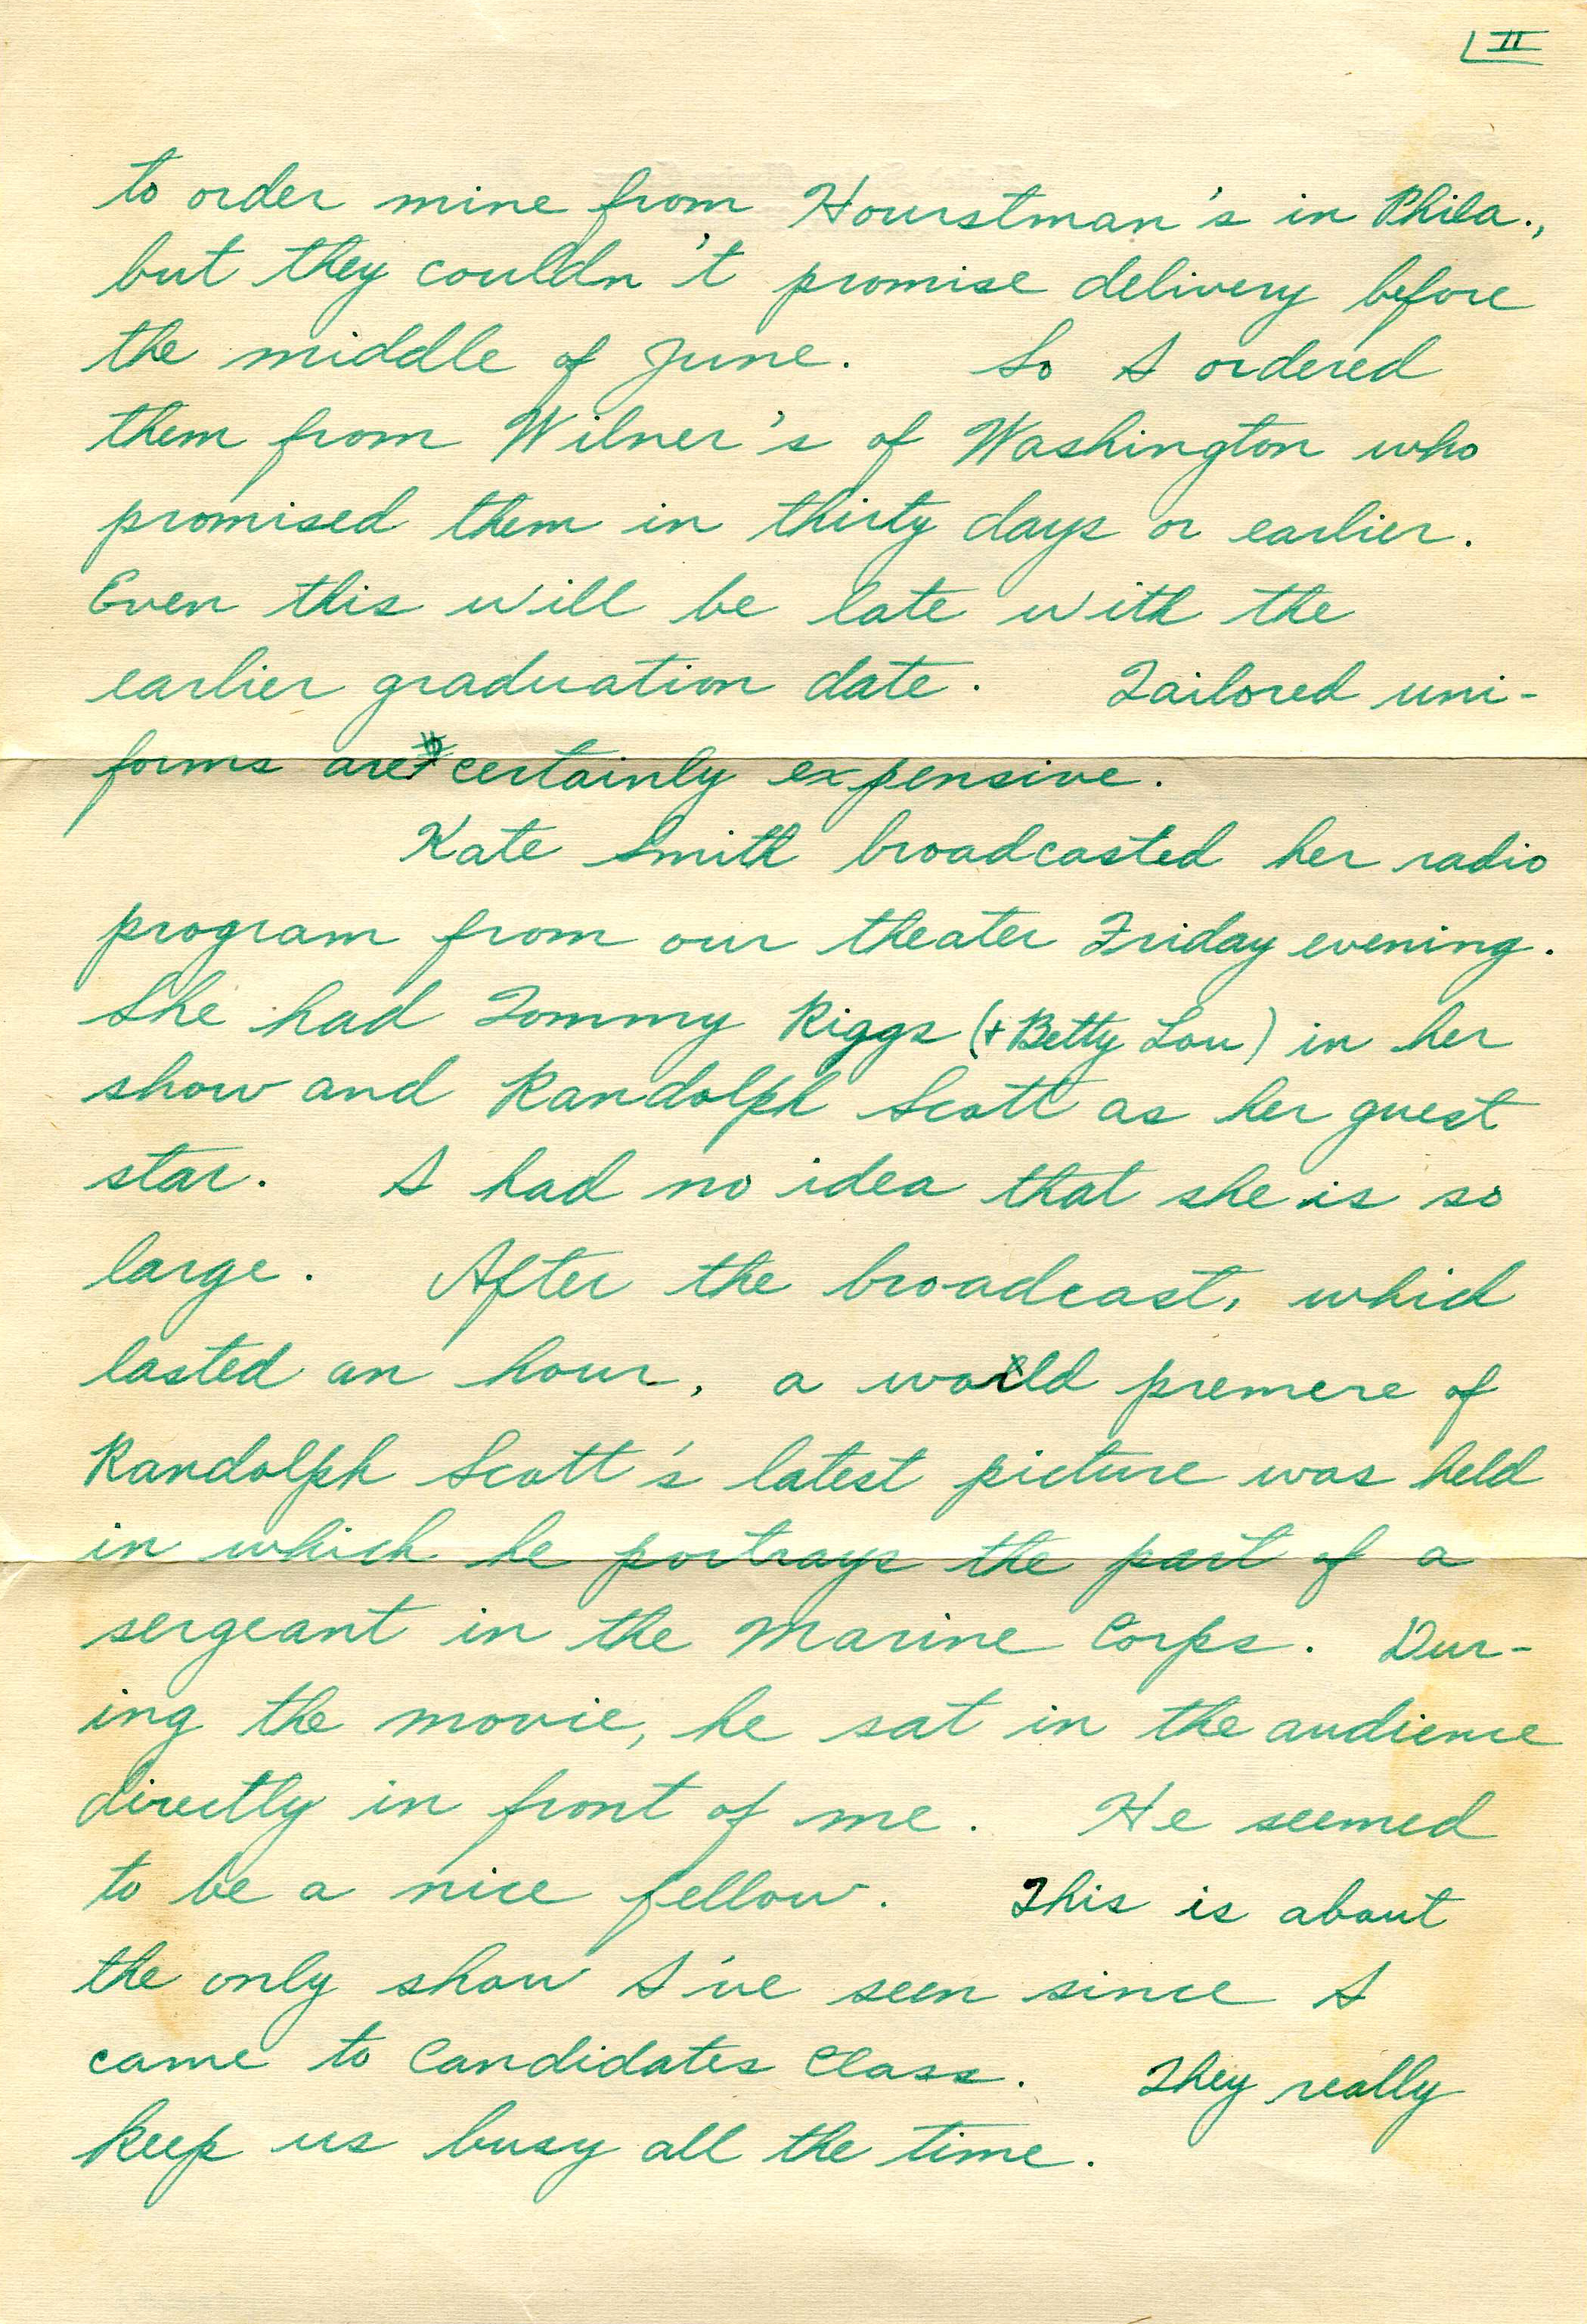 II
to order mine from Hourstman's in Phila.,
but they couldn't promise delivery before
the middle of June. So I ordered
them from Wilner's of Washington who
promised them in thirty days or earlier.
Even this will be late with the
earlier graduation date. Tailored uni-
forms are certainly expensive.
Kate Smith broadcasted her radio
program from our theater Friday evening.
She had Tommy Riggs (+ Betty Lou) in her
show and Randolph Scott as her guest
star. I had no idea that she is so
large. After the broadcast, which
lasted an hour, a world premere of
Randolph Scott's latest picture was held
in which he portrays the part of a
sergeant in the Marine Corps. Dur-
ing the movie, he sat in the audience
directly in front of me. He seemed
to be a nice fellow. This is about
the only show I've seen since I
came to Candidates Class. They really
keep us busy all the time.